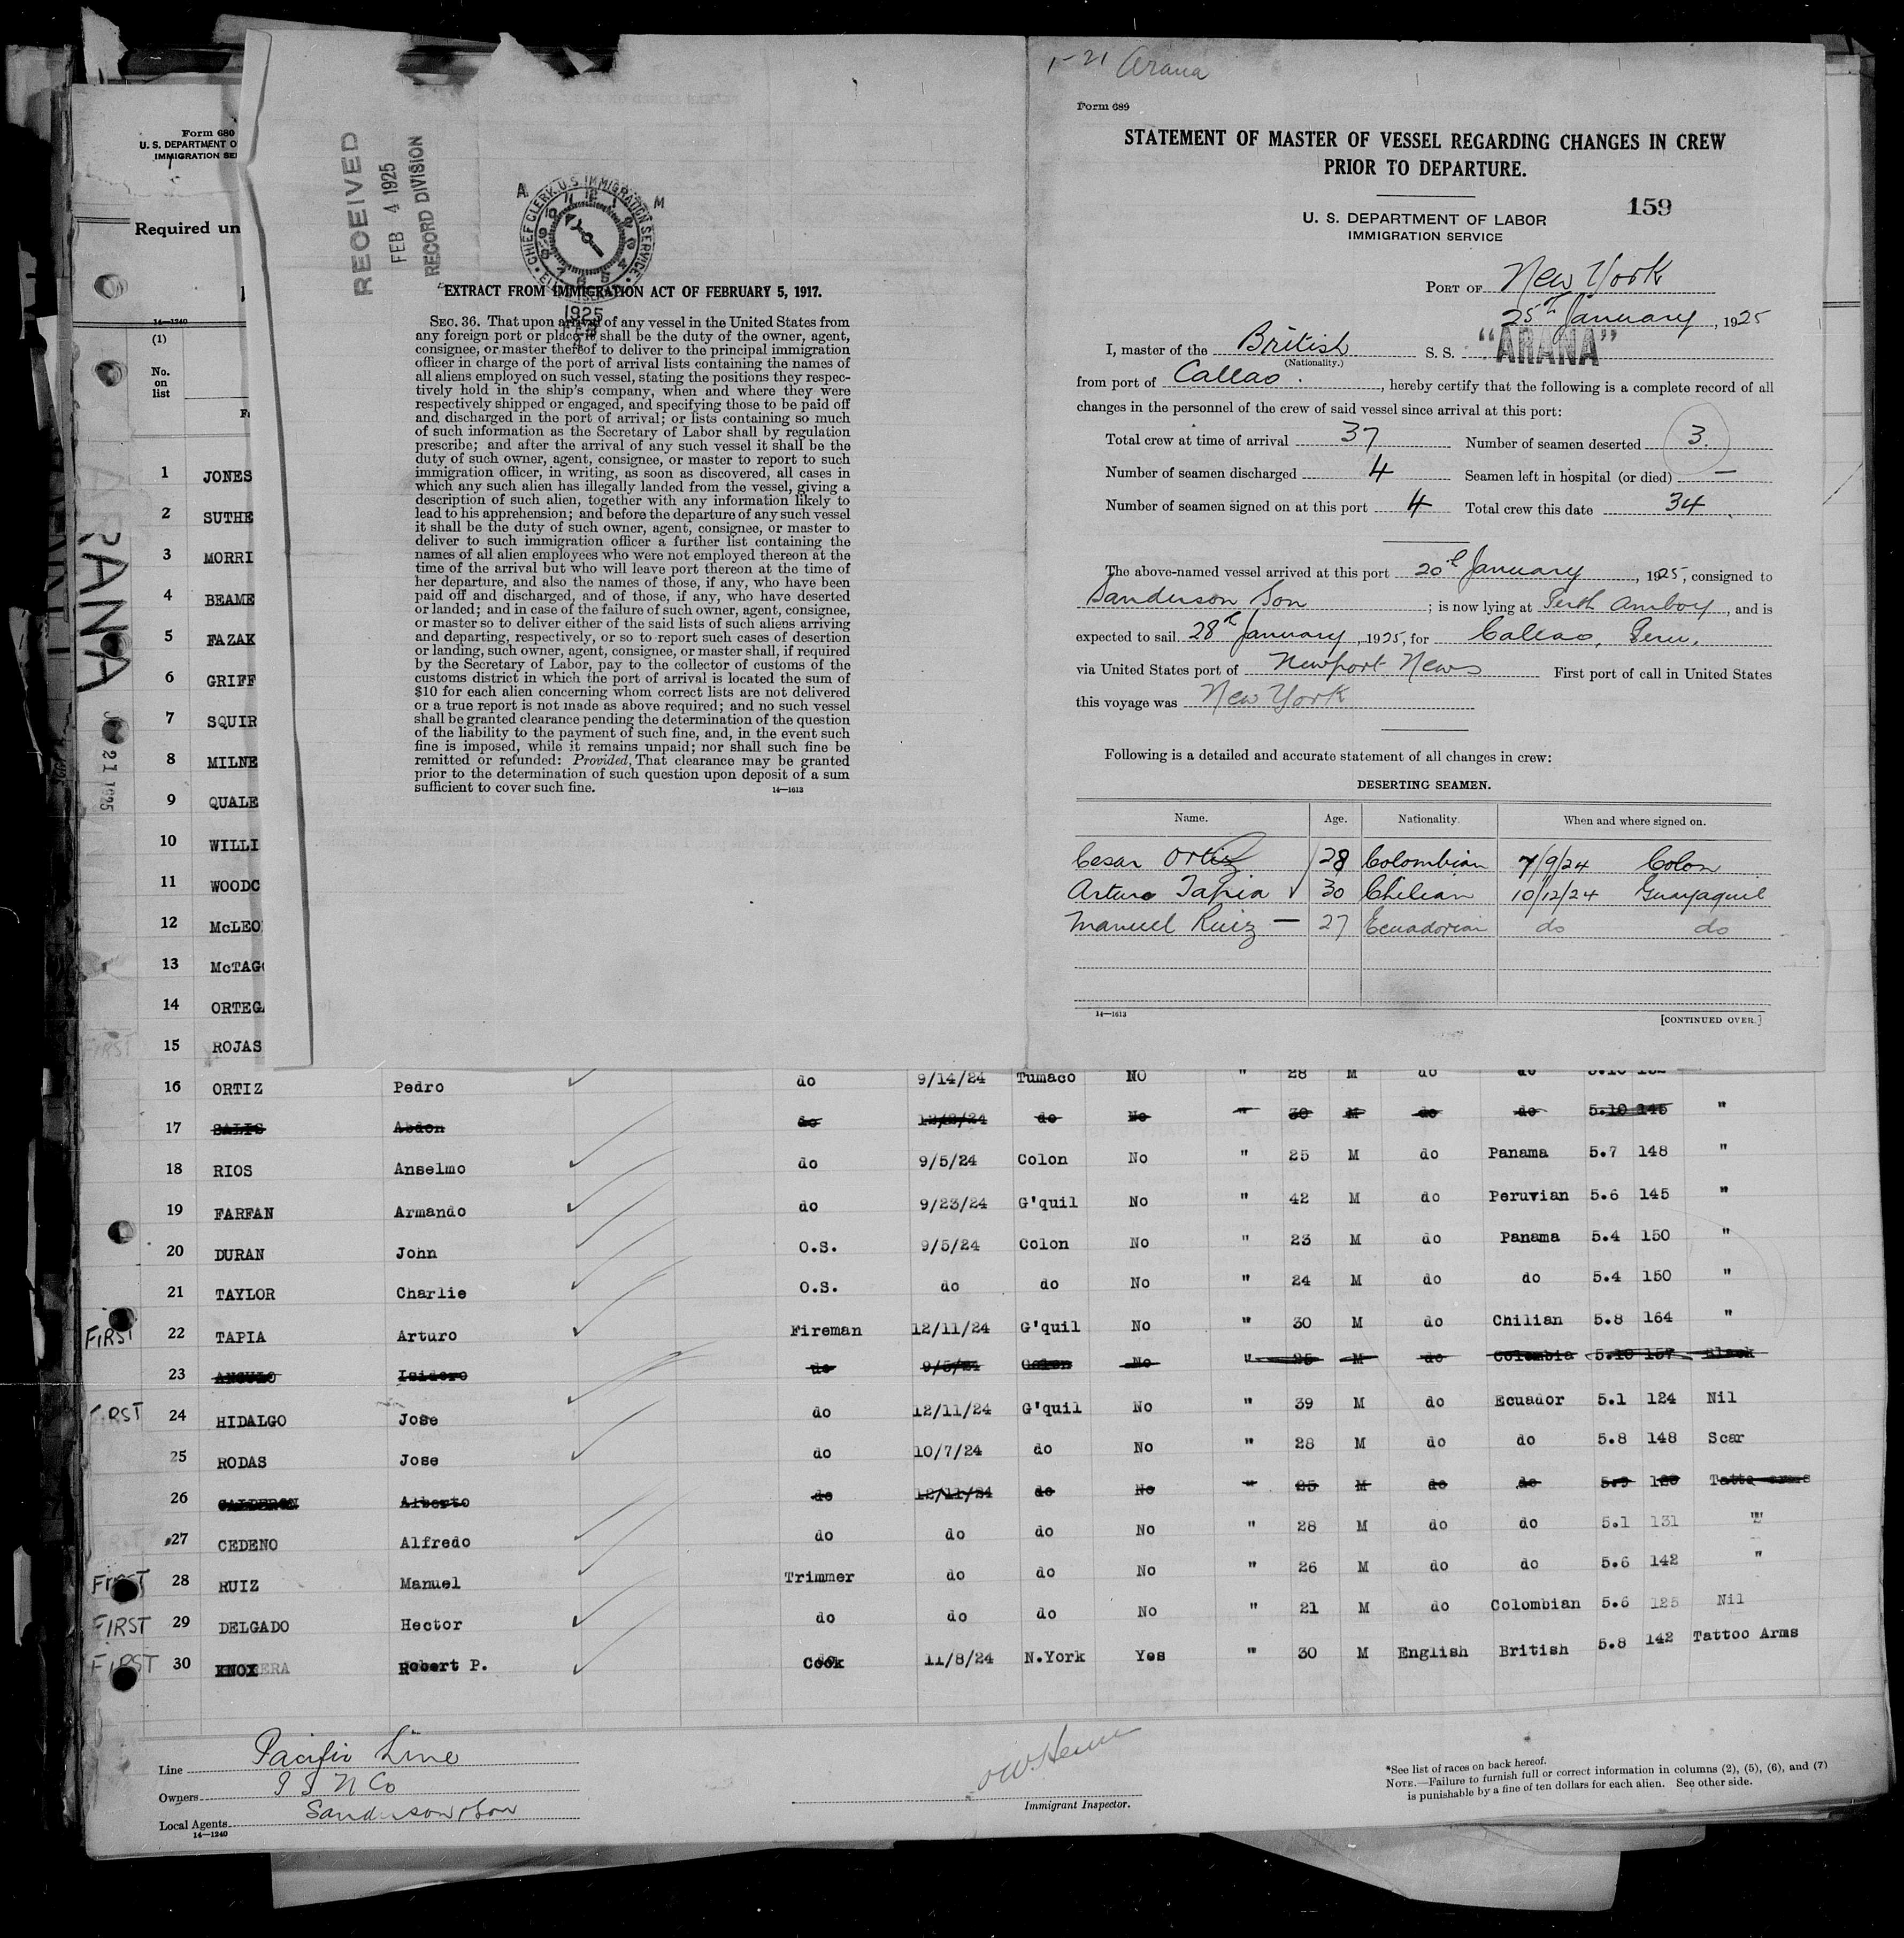 Form 680
U. S. DEPARTMENT O
IMMIGRATION SE
Required un
14—1240
(1)
No.
on
list
ARANA
21 1925
1 JONES
2 SUTHE
3 MORRI
4 BEAME
5 FAZAK
6 GRIFF
7 SQUIR
8 MILNE
9 QUALE
10 WILLI
11 WOODC
12 McLEO
13 McTAG
14 ORTEG
FIRST 15 ROJAS
RECEIVED
FEB 4 1925
RECORD DIVISION
A M
CHIEF CLERK U.S. IMMIGRATION SERVICE
1925
EXTRACT FROM IMMIGRATION ACT OF FEBRUARY 5, 1917.
SEC. 36. That upon arrival of any vessel in the United States from
any foreign port or place it shall be the duty of the owner, agent,
consignee, or master thereof to deliver to the principal immigration
officer in charge of the port of arrival lists containing the names of
all aliens employed on such vessel, stating the positions they respec-
tively hold in the ship's company, when and where they were
respectively shipped or engaged, and specifying those to be paid off
and discharged in the port of arrival; or lists containing so much
of such information as the Secretary of Labor shall by regulation
prescribe; and after the arrival of any such vessel it shall be the
duty of such owner, agent, consignee, or master to report to such
immigration officer, in writing, as soon as discovered, all cases in
which any such alien has illegally landed from the vessel, giving a
description of such alien, together with any information likely to
lead to his apprehension; and before the departure of any such vessel
it shall be the duty of such owner, agent, consignee, or master to
deliver to such immigration officer a further list containing the
names of all alien employees who were not employed thereon at the
time of the arrival but who will leave port thereon at the time of
her departure, and also the names of those, if any, who have been
paid off and discharged, and of those, if any, who have deserted
or landed; and in case of the failure of such owner, agent, consignee,
or master so to deliver either of the said lists of such aliens arriving
and departing, respectively, or so to report such cases of desertion
or landing, such owner, agent, consignee, or master shall, if required
by the Secretary of Labor, pay to the collector of customs of the
customs district in which the port of arrival is located the sum of
$10 for each alien concerning whom correct lists are not delivered
or a true report is not made as above required; and no such vessel
shall be granted clearance pending the determination of the question
of the liability to the payment of such fine, and, in the event such
fine is imposed, while it remains unpaid; nor shall such fine be
remitted or refunded: Provided, That clearance may be granted
prior to the determination of such question upon deposit of a sum
sufficient to cover such fine. 14—1613
1-21 Arana
Form 689
STATEMENT OF MASTER OF VESSEL REGARDING CHANGES IN CREW
PRIOR TO DEPARTURE.
159
U. S. DEPARTMENT OF LABOR
IMMIGRATION SERVICE
PORT OF New York
25th January, 1925
I, master of the British S. S. "ARANA"
(Nationality.)
from port of Callao., hereby certify that the following is a complete record of all
changes in the personnel of the crew of said vessel since arrival at this port:
Total crew at time of arrival 37 Number of seamen deserted 3.
Number of seamen discharged 4 Seamen left in hospital (or died) —
Number of seamen signed on at this port 4 Total crew this date 34
The above-named vessel arrived at this port 20th January, 1925, consigned to
Sanderson Son; is now lying at Perth Amboy, and is
expected to sail 28th January, 1925, for Callao, Peru,
via United States port of Newport News First port of call in United States
this voyage was New York
Following is a detailed and accurate statement of all changes in crew:
DESERTING SEAMEN.
Name. Age. Nationality. When and where signed on.
Cesar Ortiz 28 Colombian 7/9/24 Colon
Arturo Tapia 30 Chilean 10/12/24 Guayaquil
Manuel Ruiz — 27 Ecuadorian do do
14—1613 [CONTINUED OVER.]
16 ORTIZ Pedro do 9/14/24 Tumaco NO " 28 M do do 5.10 152
17 SALIS Abdon do 12/2/24 do No " 30 M do do 5.10 145 "
18 RIOS Anselmo do 9/5/24 Colon No " 25 M do Panama 5.7 148 "
19 FARFAN Armando do 9/23/24 G'quil No " 42 M do Peruvian 5.6 145 "
20 DURAN John O.S. 9/5/24 Colon No " 23 M do Panama 5.4 150 "
21 TAYLOR Charlie O.S. do do No " 24 M do do 5.4 150 "
FIRST 22 TAPIA Arturo Fireman 12/11/24 G'quil No " 30 M do Chilian 5.8 164 "
23 ANGULO Isidoro do 9/5/24 Colon No " 25 M do Colombia 5.10 157 Black
FIRST 24 HIDALGO Jose do 12/11/24 G'quil No " 39 M do Ecuador 5.1 124 Nil
25 RODAS Jose do 10/7/24 do No " 28 M do do 5.8 148 Scar
26 CALDERON Alberto do 12/11/24 do No " 25 M do do 5.9 120 Tatto arms
27 CEDENO Alfredo do do do No " 28 M do do 5.1 131 "
FIRST 28 RUIZ Manuel Trimmer do do No " 26 M do do 5.6 142 "
FIRST 29 DELGADO Hector do do do No " 21 M do Colombian 5.6 125 Nil
FIRST 30 KNOX Robert P. Cook 11/8/24 N.York Yes " 30 M English British 5.8 142 Tattoo Arms
Line Pacific Line
Owners P S N Co
Local Agents Sanderson & Son
14—1240
Immigrant Inspector.
*See list of races on back hereof.
NOTE.—Failure to furnish full or correct information in columns (2), (5), (6), and (7)
is punishable by a fine of ten dollars for each alien. See other side.